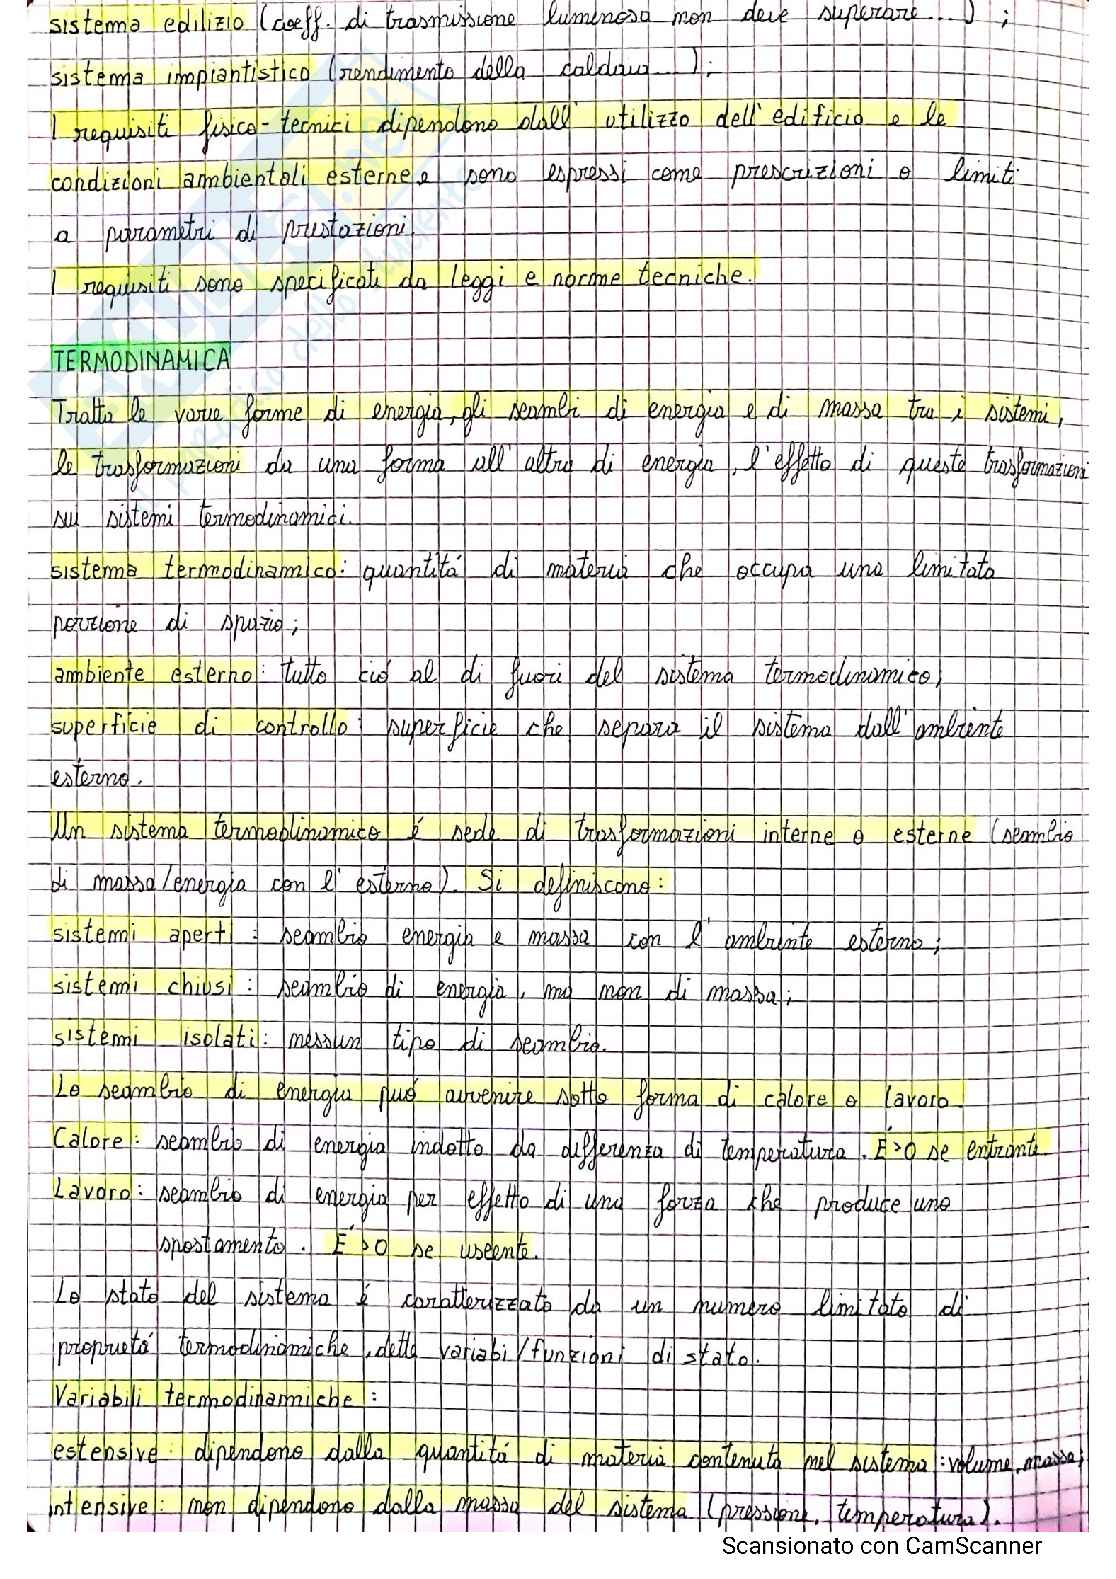 sistema edilizio (coeff. di trasmissione luminosa non deve superare...) ;
sistema impiantistico (rendimento della caldaia...);
I requisiti fisico-tecnici dipendono dall' utilizzo dell' edificio e le
condizioni ambientali esterne e sono espressi come prescrizioni o limiti
a parametri di prestazioni.
I requisiti sono specificati da leggi e norme tecniche.
TERMODINAMICA
Tratta le varie forme di energia, gli scambi di energia e di massa tra i sistemi,
le trasformazioni da una forma all' altra di energia, l'effetto di queste trasformazioni
sui sistemi termodinamici.
sistema termodinamico: quantitá di materia che occupa una limitata
porzione di spazio;
ambiente esterno: tutto ció al di fuori del sistema termodinamico;
superficie di controllo: superficie che separa il sistema dall' ambiente
esterno.
Un sistema termodinamico é sede di trasformazioni interne o esterne (scambio
di massa/energia con l' esterno). Si definiscono:
sistemi aperti: scambio energia e massa con l' ambiente esterno;
sistemi chiusi: scambio di energia, ma non di massa;
sistemi isolati: nessun tipo di scambio.
Lo scambio di energia puó avvenire sotto forma di calore o lavoro.
Calore: scambio di energia indotto da differenza di temperatura. É >0 se entrante
Lavoro: scambio di energia per effetto di una forza che produce uno
spostamento. É >0 se uscente.
Lo stato del sistema é caratterizzato da un numero limitato di
proprietá termodinamiche, dette variabi/funzioni di stato.
Variabili termodinamiche:
estensive: dipendono dalla quantitá di materia contenuta nel sistema: volume, massa;
intensive: non dipendono dalla massa del sistema (pressione, temperatura).
Scansionato con CamScanner